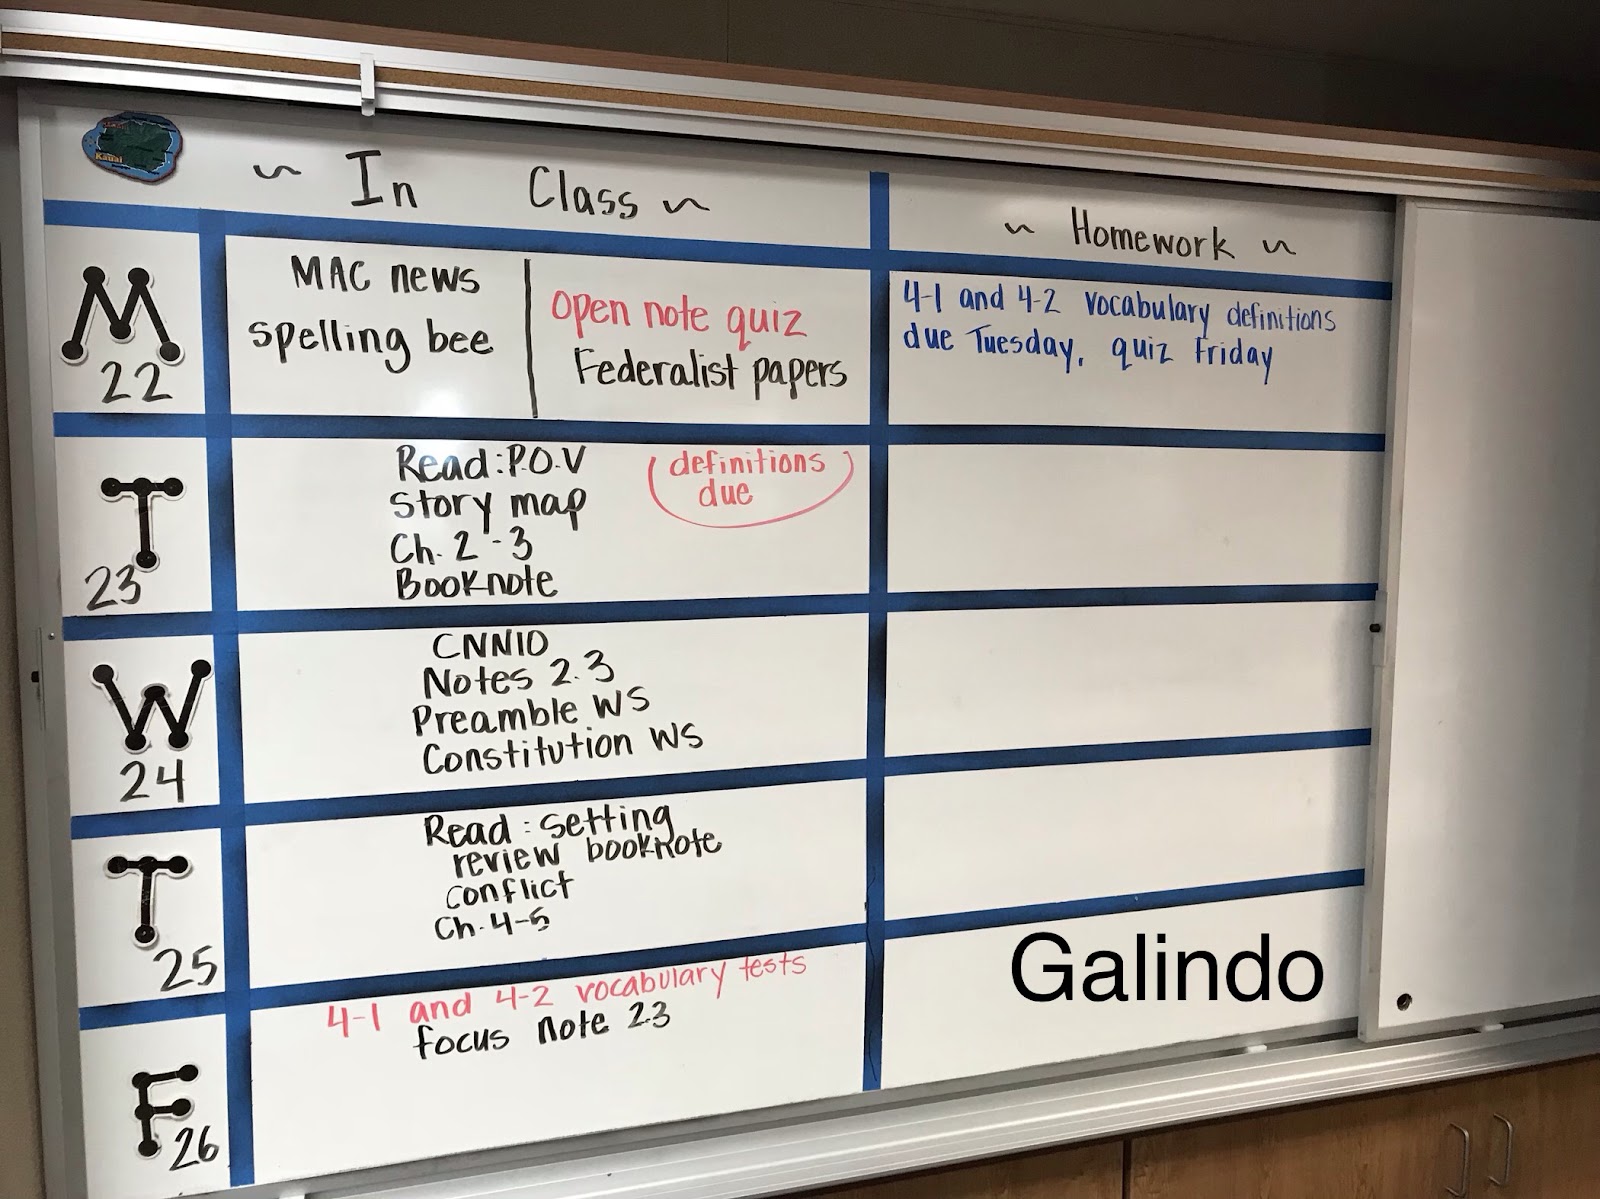 Kauai
~ In Class ~
~ Homework ~
M
22
MAC news
spelling bee
open note quiz
Federalist papers
4-1 and 4-2 vocabulary definitions
due Tuesday, quiz Friday
T
23
Read: P.O.V
Story map
Ch. 2-3
Booknote
definitions
due
W
24
CNN10
Notes 2.3
Preamble WS
Constitution WS
T
25
Read: setting
review booknote
conflict
Ch. 4-5
F
26
4-1 and 4-2 vocabulary tests
focus note 2.3
Galindo